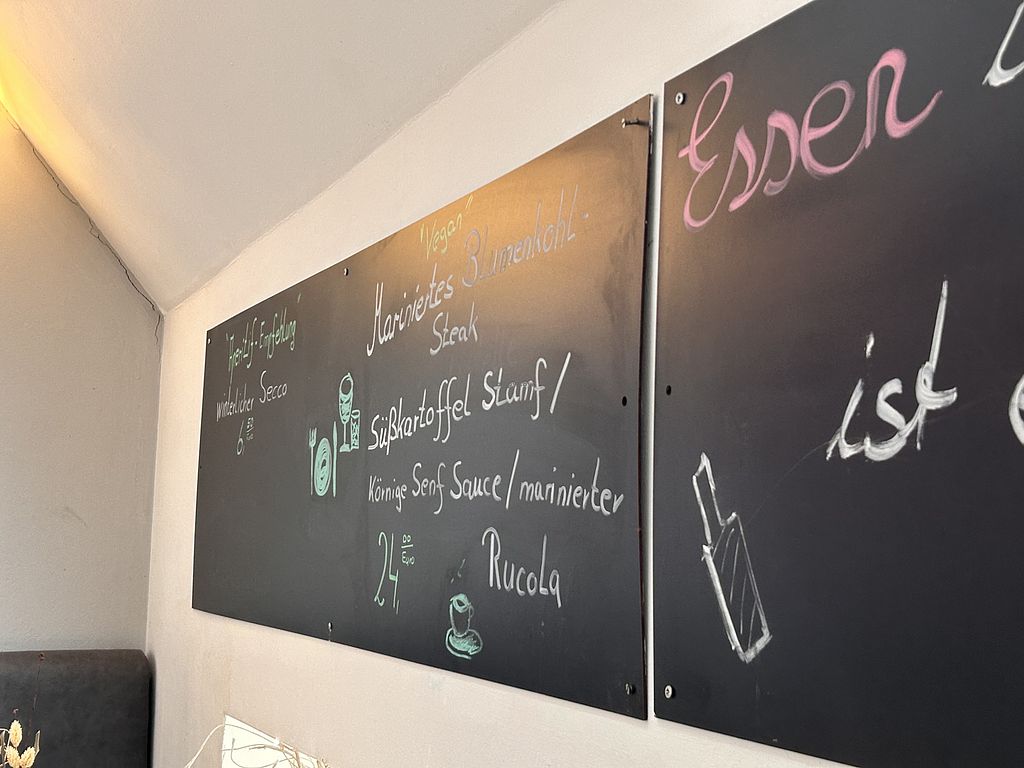 "Aperitif-Empfehlung"
winterlicher Secco
6,
"Vegan"
Mariniertes Blumenkohl-
Steak
Süßkartoffel Stamf/
Körnige Senf Sauce/marinierter
24, 00 Euro
Rucola
Essen
ist